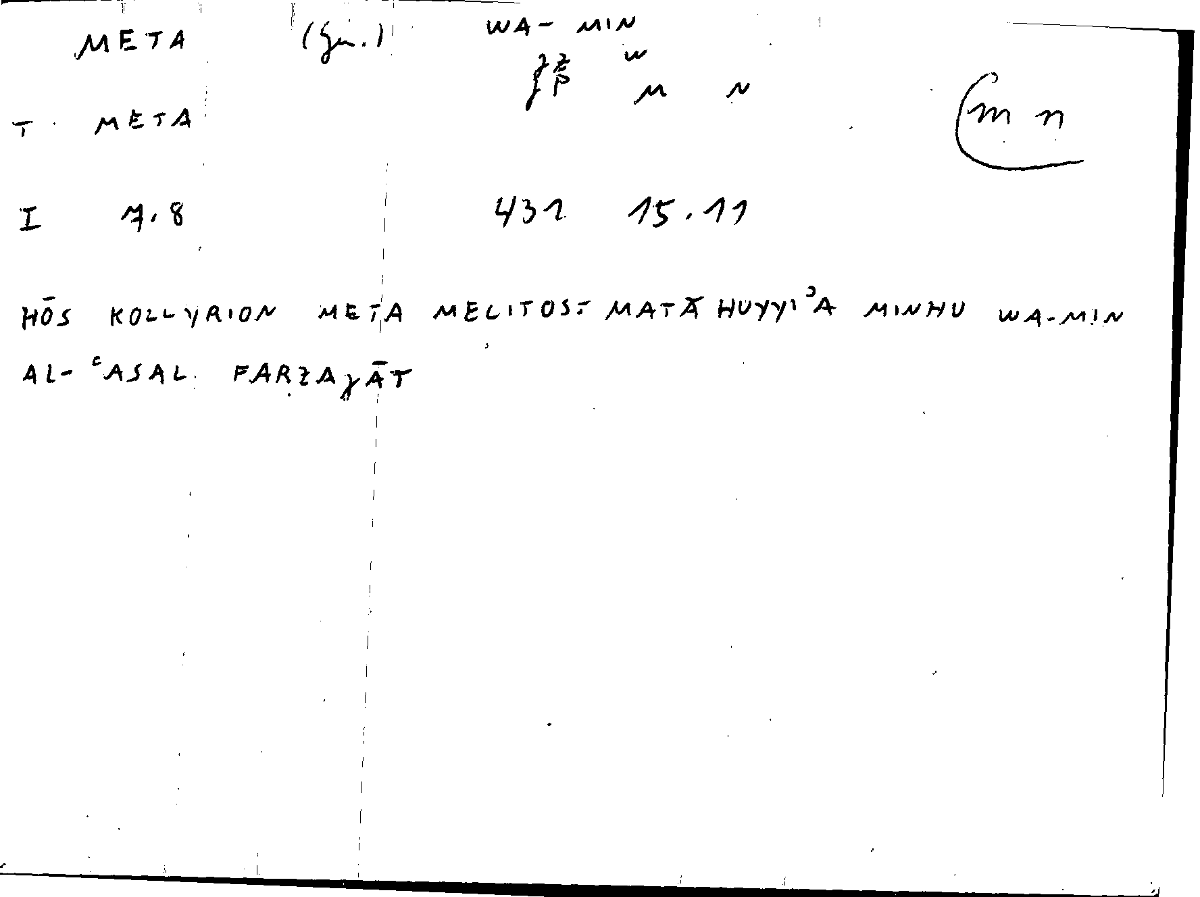 META (Gen.) WA- MIN
W
T META M N
m n
I 7.8 431 15.11
HŌS KOLLYRION META MELITOS: MATĀ HUYYIʾA MINHU WA-MIN
AL-ʿASAL FARZAǧĀT